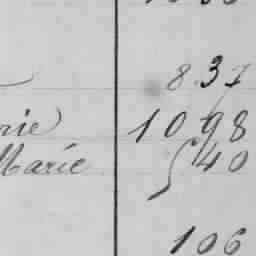 837
rie) 1098
Marie 540
106